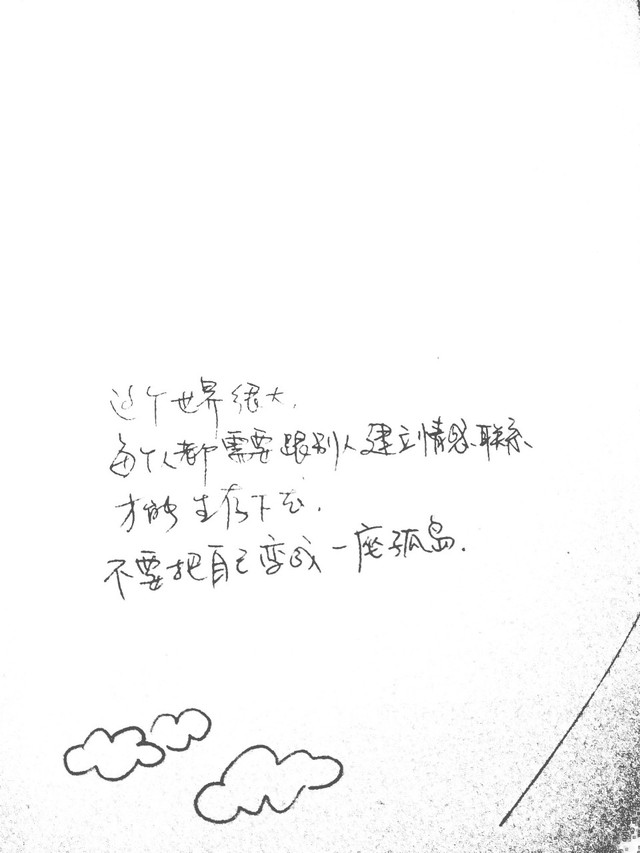 这个世界很大,
每个人都需要跟别人建立情感联系、
才能生存下去.
不要把自己变成一座孤岛.